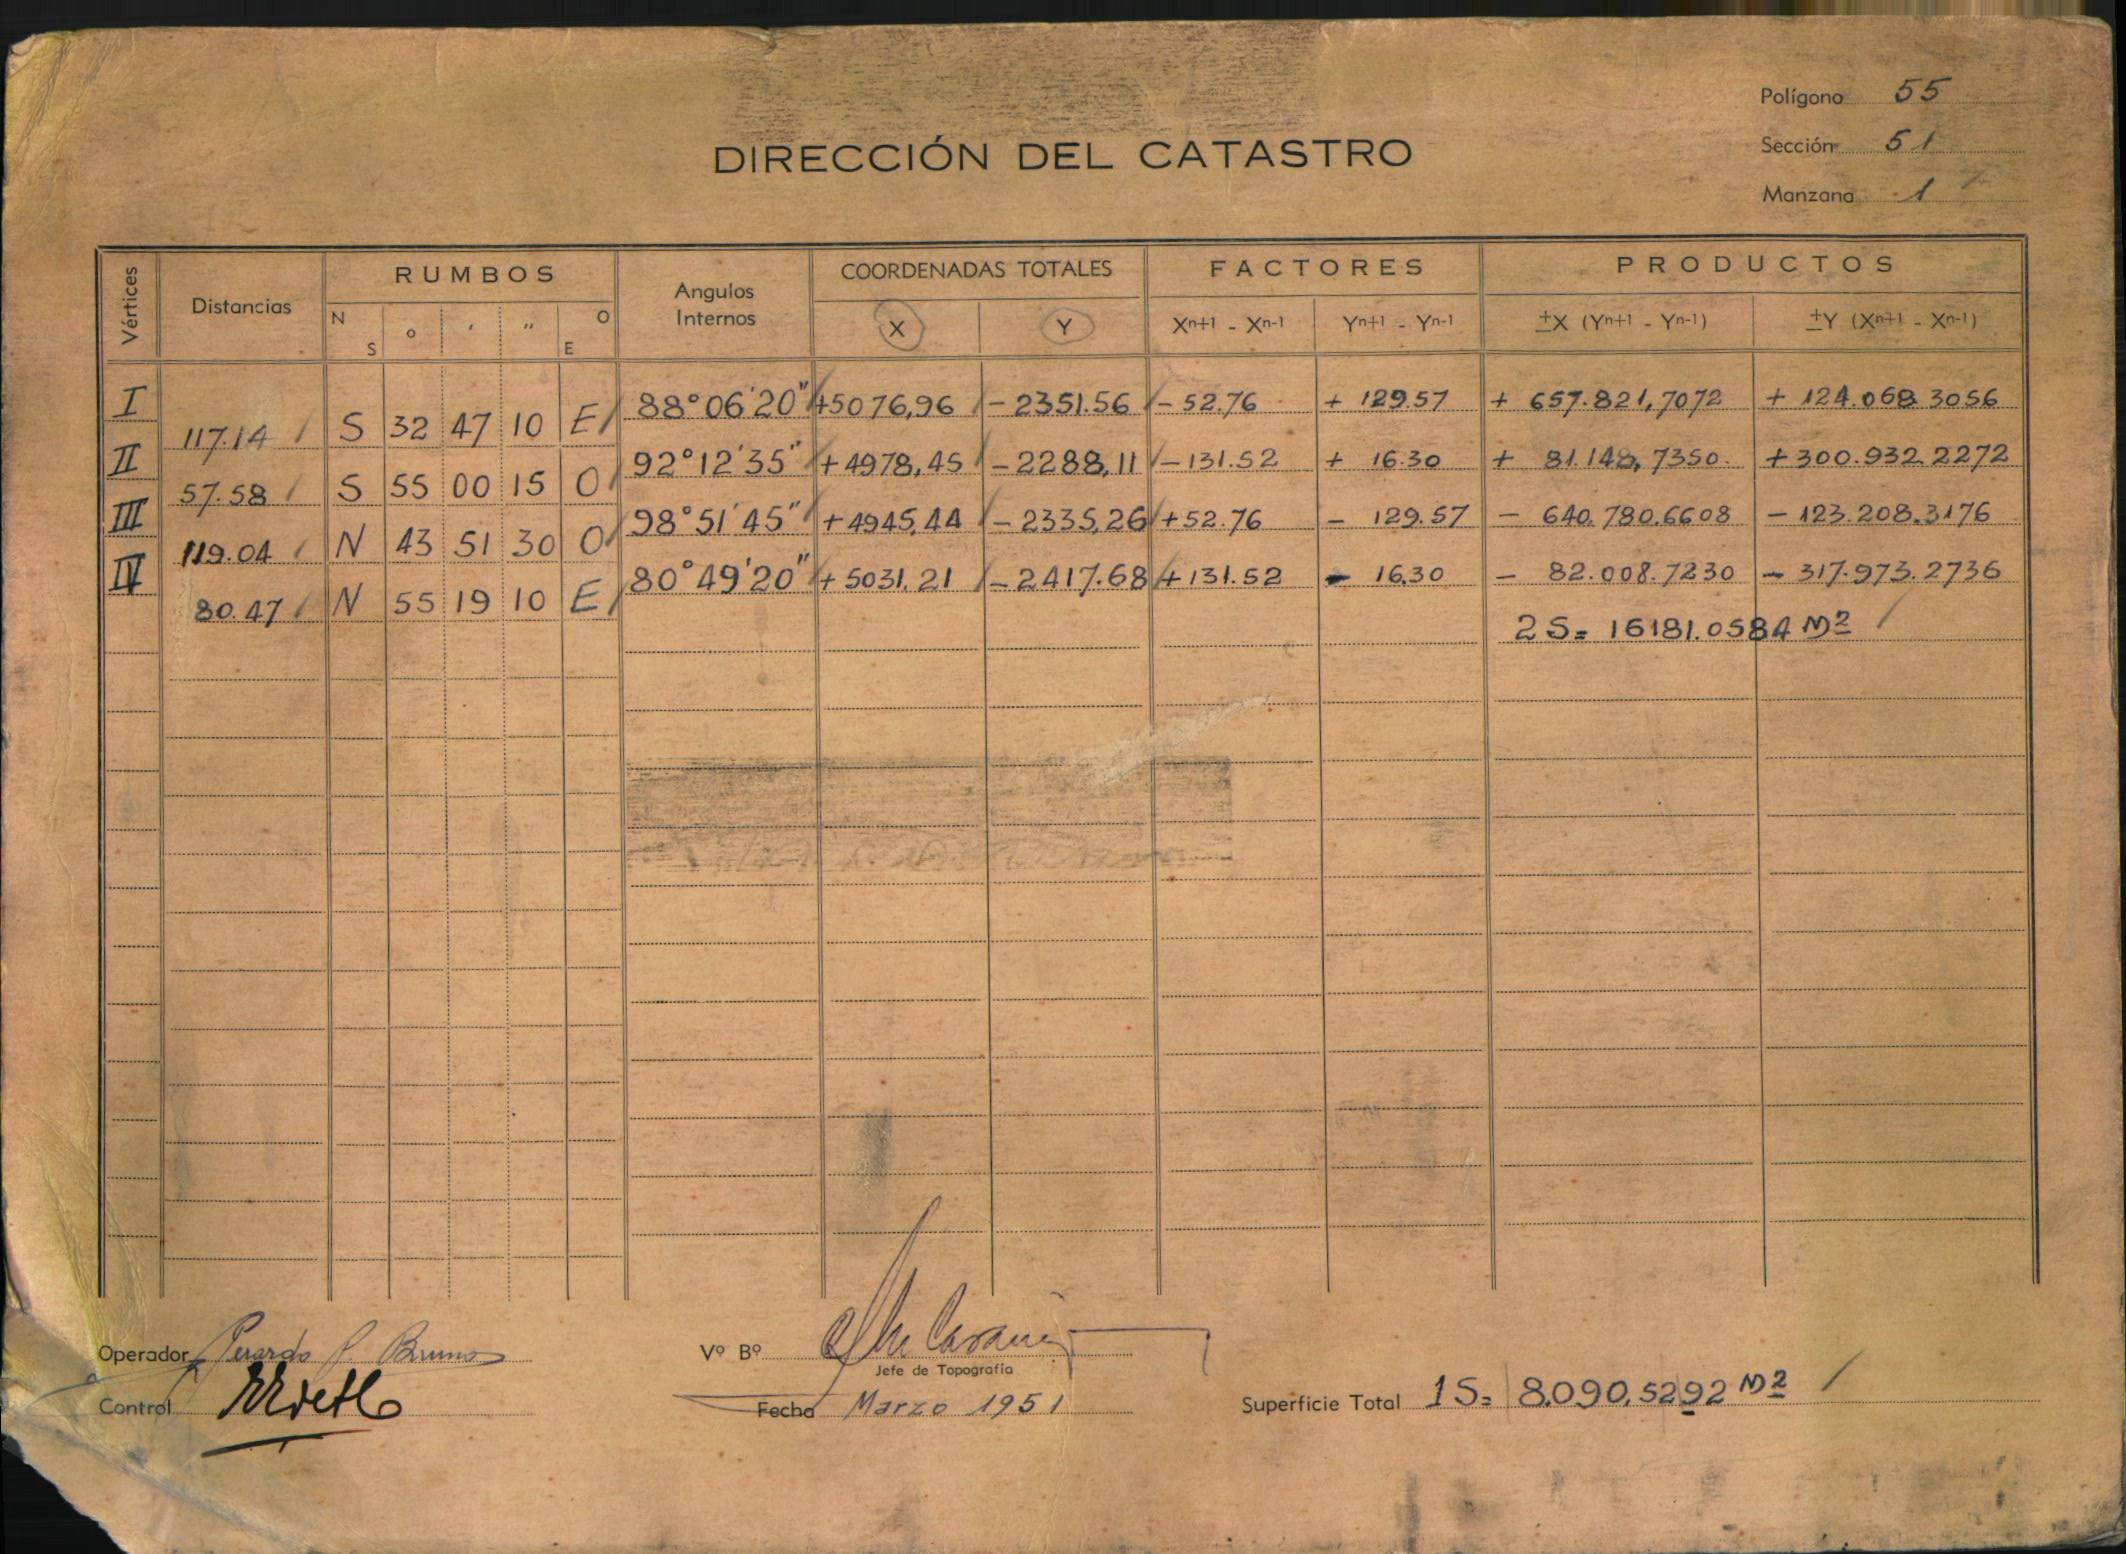 Polígono 55
DIRECCIÓN DEL CATASTRO
Sección 51
Manzana 1
Vértices Distancias RUMBOS Angulos Internos COORDENADAS TOTALES FACTORES PRODUCTOS
N S ° ′ ″ O E X Y Xn+1 - Xn-1 Yn+1 - Yn-1 ±X (Yn+1 - Yn-1) ±Y (Xn+1 - Xn-1)
I 88°06'20" +5076,96 -2351.56 -52.76 + 129.57 + 657.821,7072 + 124.068.3056
117.14 S 32 47 10 E
II 92°12'35" +4978,45 -2288,11 -131.52 + 16.30 + 81.148,7350. +300.932.2272
57.58 S 55 00 15 O
III 98°51'45" +4945,44 -2335,26 +52.76 - 129.57 - 640.780.6608 - 123.208.3176
119.04 N 43 51 30 O
IV 80°49'20" +5031,21 -2417.68 +131.52 - 16.30 - 82.008.7230 - 317.973.2736
80.47 N 55 19 10 E
2S= 16181.0584 M2
Operador P. Bruno
Vº Bº
Jefe de Topografía
Control
Fecha Marzo 1951
Superficie Total 1S= 8.090,5292 M2